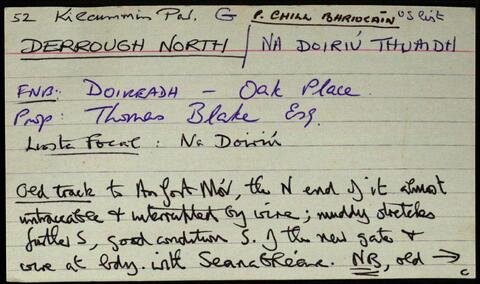 52 Kilcummin Par. G P. CHILL BHRIOCÁIN OS list
DERROUGH NORTH / NA DOIRIÚ THUAIDH
FNB: DOIREADH – Oak Place.
Prop: Thomas Blake Esq.
Liosta Focal: Na Doiriú
Old track to An fort Mór, the N end of it almost
untraceable & interrupted by wire; muddy stretches
further S, good condition S. of the new gate &
wire at bdy. with Seanabhéana. NB, old →
c